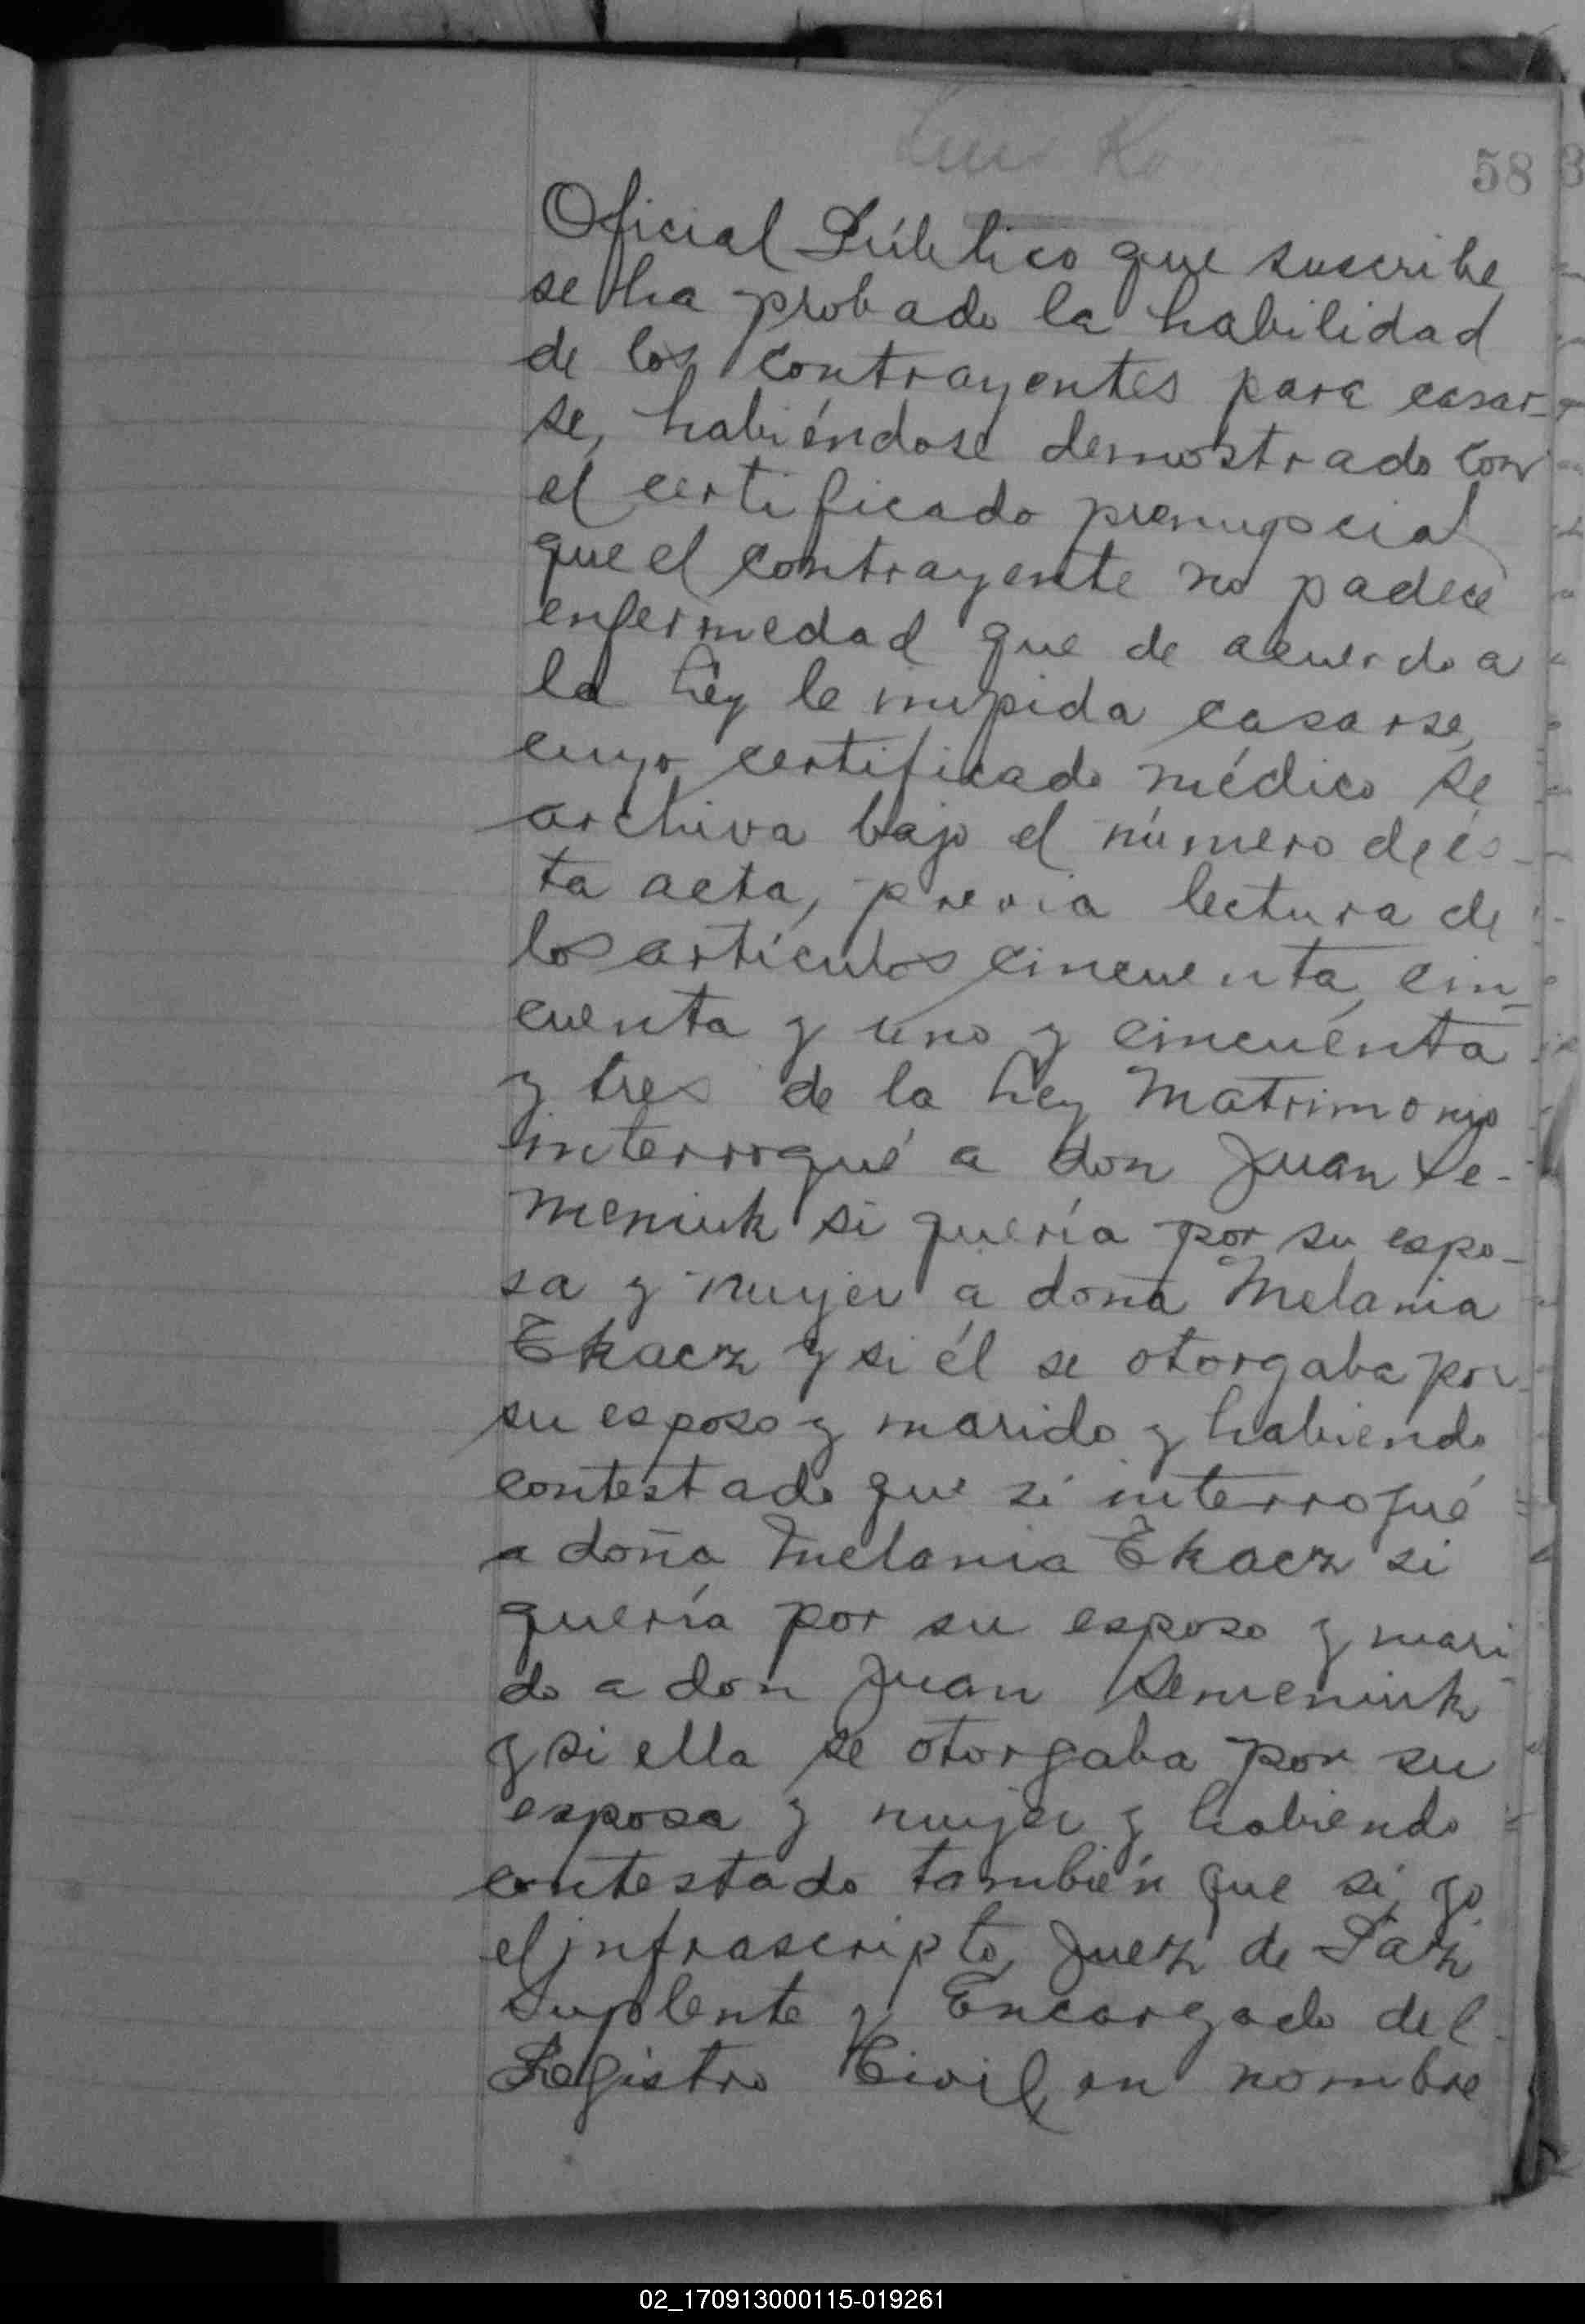 58
Oficial Público que suscribe
se ha probado la habilidad
de los contrayentes para casar-
se, habiéndose demostrado con
el certificado prenupcial
que el contrayente no padece
enfermedad que de acuerdo a
la Ley le impida casarse,
cuyo certificado médico se
archiva bajo el número de és-
ta acta, previa lectura de
los artículos cincuenta, cin-
cuenta y uno y cincuenta
y tres de la Ley Matrimonio
interrogué a don Juan Se-
meniuk si quería por su espo-
sa y mujer a doña Melania
Tkacz y si él se otorgaba por
su esposo y marido y habiendo
contestado que si interrogué
a doña Melania Tkacz si
quería por su esposo y mari-
do a don Juan Semeniuk
y si ella se otorgaba por su
esposa y mujer y habiendo
contestado también que si, yo
el infrascripto, Juez de Paz
Suplente y Encargado del
Registro Civil, en nombre
02_170913000115-019261